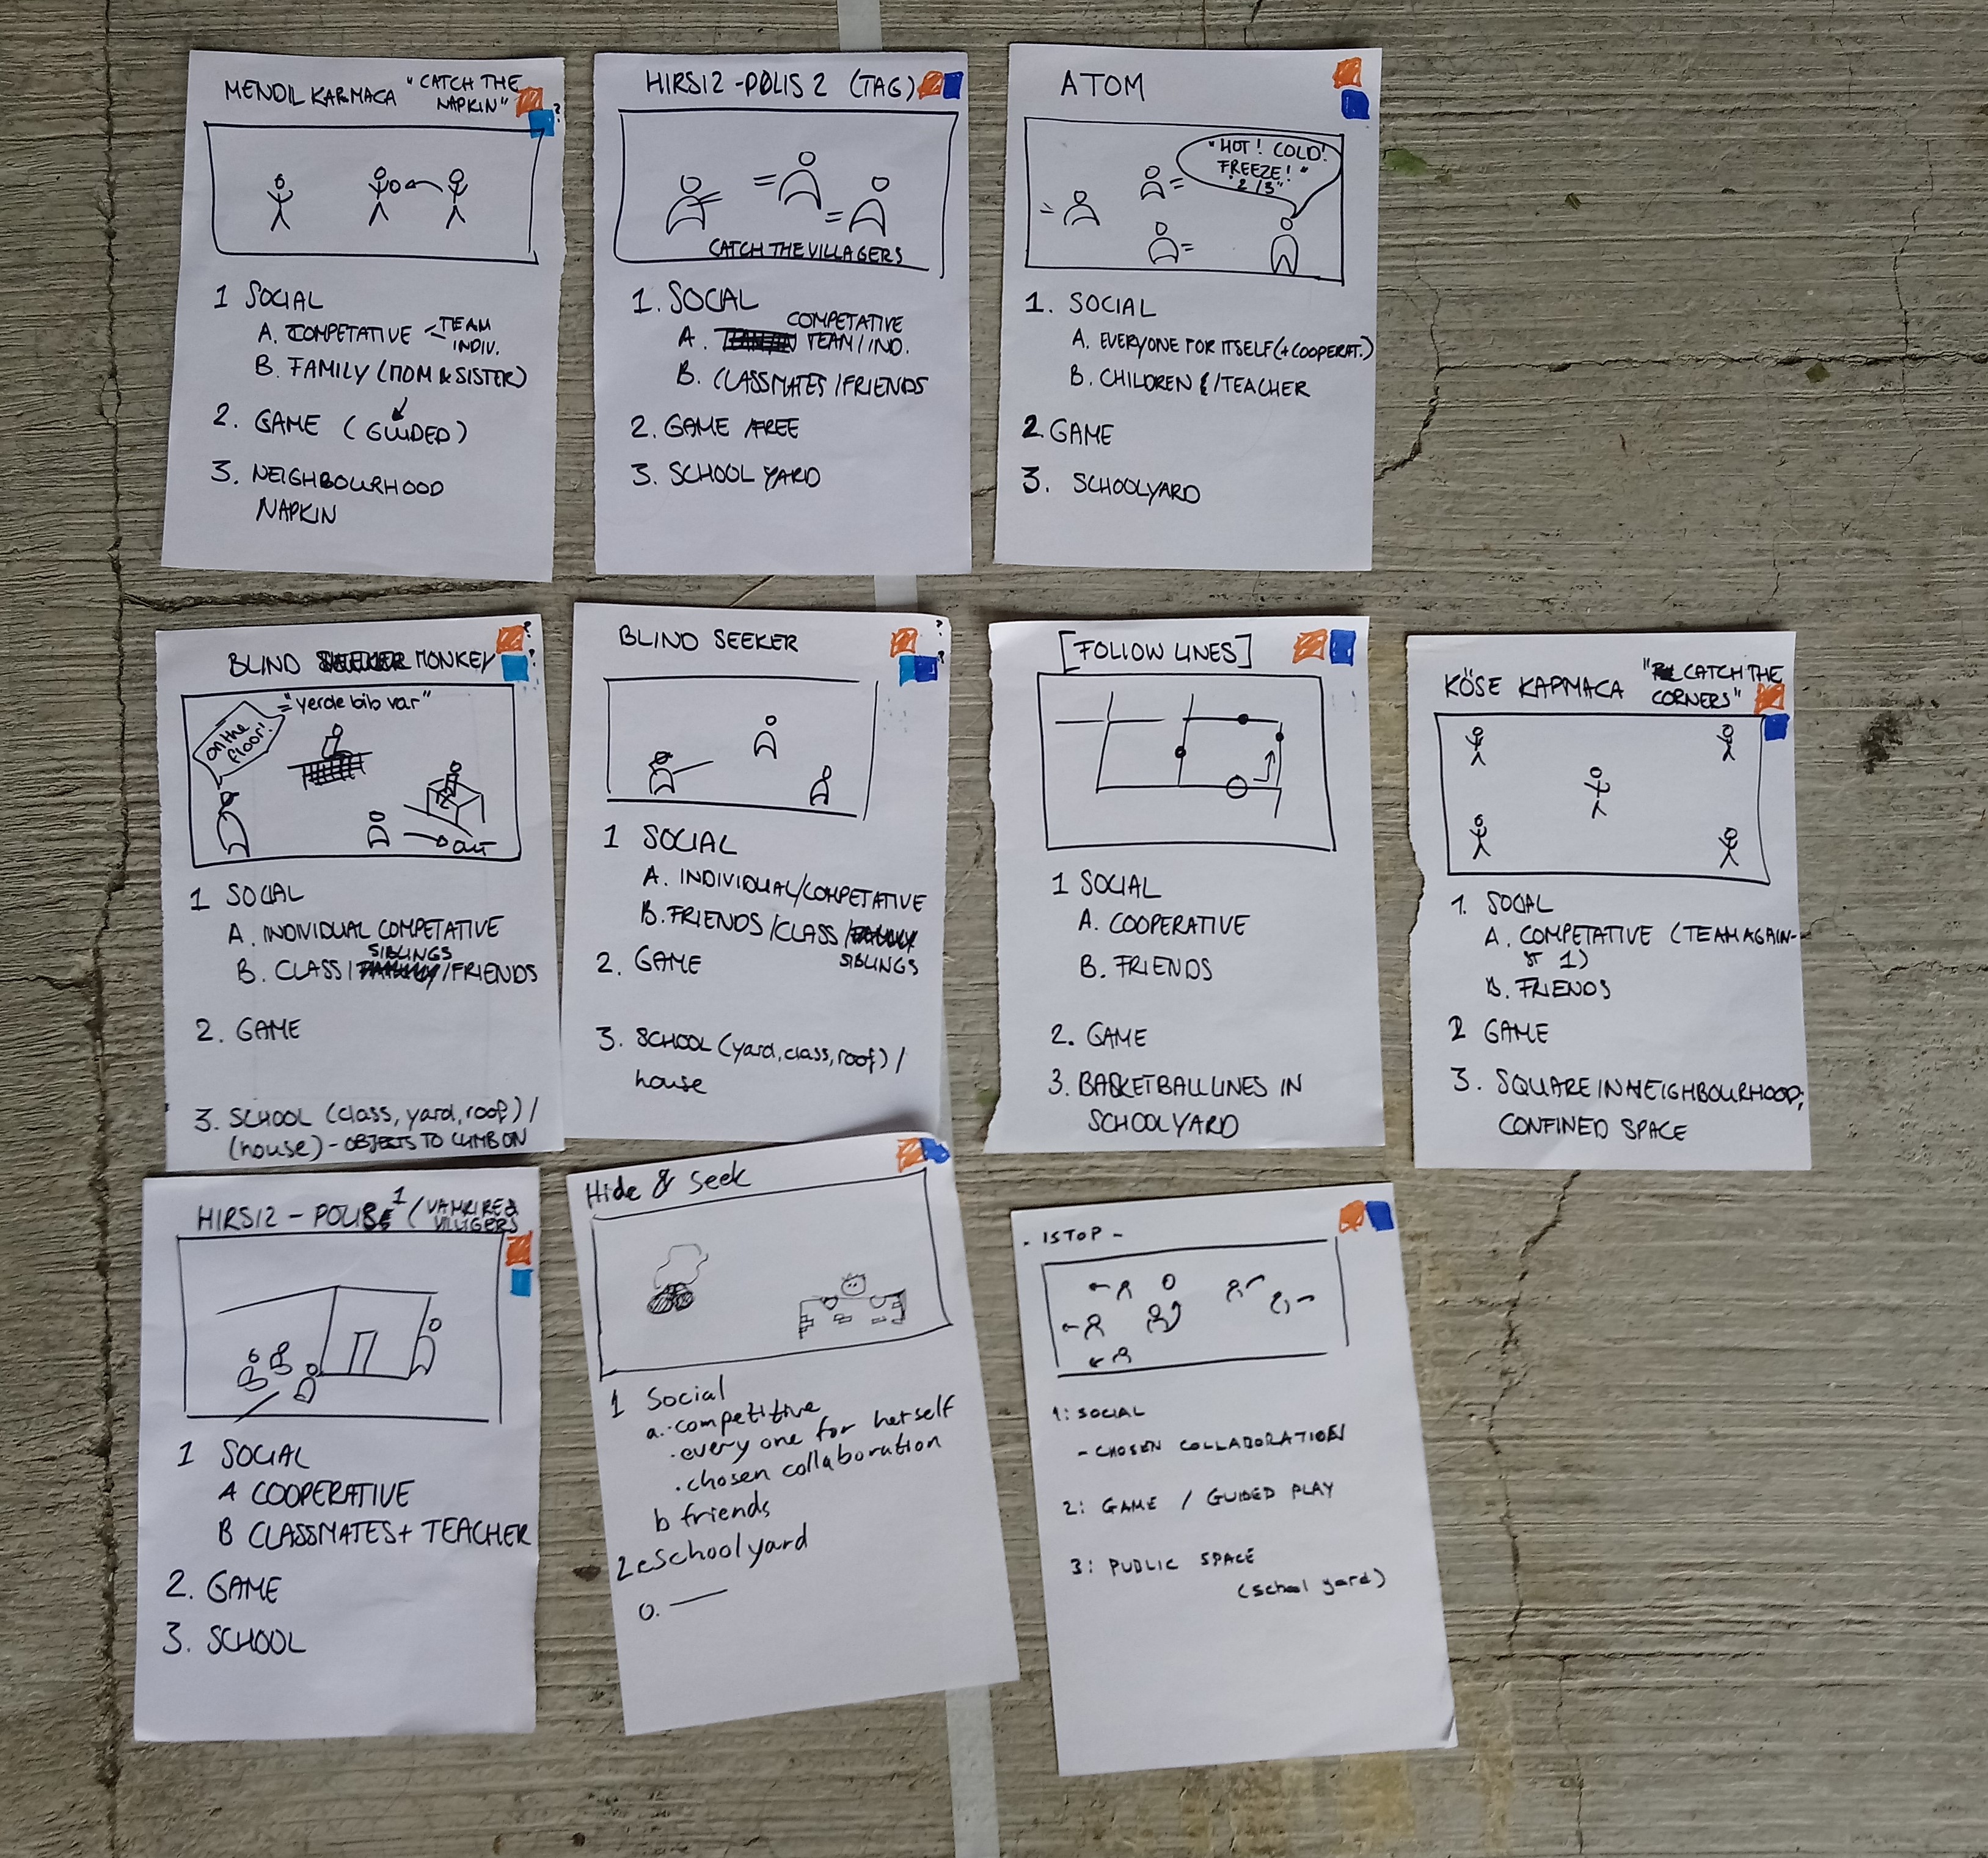 MENDIL KARMACA "CATCH THE
NAPKIN"
?
1 SOCIAL
A. COMPETATIVE < TEAM
INDIV.
B. FAMILY (MOM & SISTER)
2. GAME (GUIDED)
3. NEIGHBOURHOOD
NAPKIN
HIRSIZ - POLIS 2 (TAG)
CATCH THE VILLAGERS
1. SOCIAL
COMPETATIVE
A. TEAM/IND.
B. CLASSMATES/FRIENDS
2. GAME/FREE
3. SCHOOL YARD
ATOM
"HOT! COLD!
FREEZE!"
2/3"
1. SOCIAL
A. EVERYONE FOR ITSELF (+COOPERAT.)
B. CHILDREN /TEACHER
2. GAME
3. SCHOOLYARD
BLIND MONKEY
?
?
="yerde bib var"
on the
floor!
OUT
1 SOCIAL
A. INDIVIDUAL COMPETATIVE
SIBLINGS
B. CLASS/ /FRIENDS
2. GAME
3. SCHOOL (class, yard, roof) /
(house) - OBJECTS TO CLIMB ON
BLIND SEEKER
?
?
1 SOCIAL
A. INDIVIDUAL/COMPETATIVE
B. FRIENDS/CLASS/
SIBLINGS
2. GAME
3. SCHOOL (yard, class, roof) /
house
[FOLLOW LINES]
1 SOCIAL
A. COOPERATIVE
B. FRIENDS
2. GAME
3. BASKETBALL LINES IN
SCHOOLYARD
KÖSE KAPMACA "CATCH THE
CORNERS"
1. SOCIAL
A. COMPETATIVE (TEAM AGAIN-
ST 1)
B. FRIENDS
2 GAME
3. SQUARE IN NEIGHBOURHOOD;
CONFINED SPACE
HIRSIZ - POLIS 1 / (VAMPIRE &
VILLIGERS
1 SOCIAL
A COOPERATIVE
B CLASSMATES + TEACHER
2. GAME
3. SCHOOL
Hide & Seek
1 Social
a. · competitive
· every one for herself
· chosen collaboration
b friends
2 Schoolyard
0. —
- ISTOP -
1: SOCIAL
- CHOSEN COLLABORATION
2: GAME / GUIDED PLAY
3: PUBLIC SPACE
(school yard)